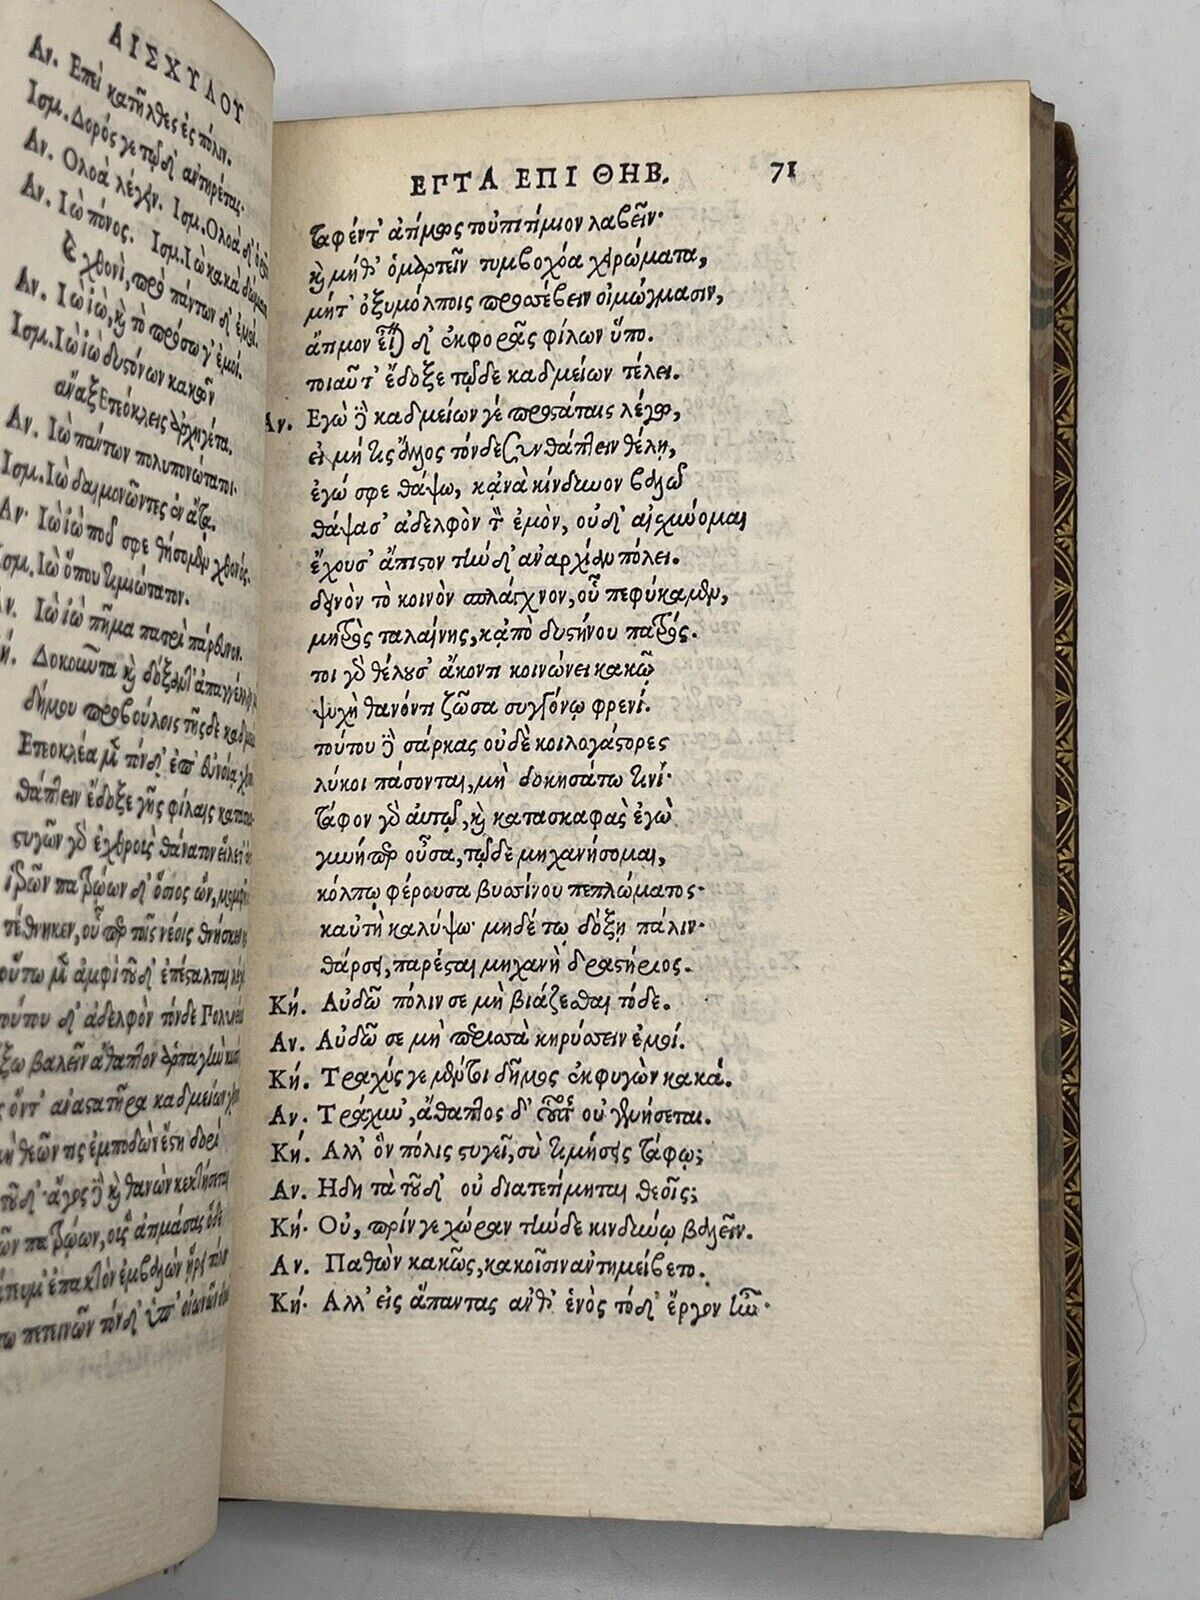 ΑΙΣΧΥΛΟΥ
Αν. Επεὶ κατῆλθες ἐς πόλιν.
Ισμ. Δορός γε τῷδ' ἀντηρέτας.
Αν. Ολοὰ λέγειν. Ισμ. Ολοὰ δ' ὁρᾶν
Αν. Ιὼ πόνος. Ισμ. Ιὼ κακὰ δώμασι
καὶ χθονὶ, πρὸ πάντων δ' ἐμοί.
Αν. Ιὼ ἰὼ, καὶ τὸ πρόσω γ' ἐμοί.
Ισμ. Ιὼ ἰὼ δυςόνων κακῶν
ἄναξ Ετεόκλεις ἀρχηγέτα.
Αν. Ιὼ πάντων πολυπονώτατοι.
Ισμ. Ιὼ δαιμονῶντες ἐν ἄτᾳ.
Αν. Ιὼ ἰὼ ποῦ σφε θήσομεν χθονός.
Ισμ. Ιὼ ὅπου τιμιώτατον.
Αν. Ιὼ ἰὼ πῆμα πατρὶ πάρευνον.
Κή. Δοκοῦντα καὶ δόξαντ' ἀπαγγέλλειν
δήμου προβούλοις τῆςδε καδμείας
Ετεοκλέα μὲν τόνδ' ἐπ' εὐνοίᾳ χθονὸς
θάπτειν ἔδοξε γῆς φίλαις κατασκα
στυγῶν γὰρ ἐχθροὺς θάνατον εἵλετ' ἐν
ἱερῶν πατρῴων δ' ὅσιος ὢν, μομφῆς
τέθνηκεν, οὗπερ τοῖς νέοις θνήσκειν
οὕτω μὲν ἀμφὶ τοῦδ' ἐπέςαλται λέγ
τούτου δ' ἀδελφὸν τόνδε Πολυνεί
ἔξω βαλεῖν ἄθαπτον ἁρπαγὴν κυσὶ
ὡς ὄντ' ἀναςατῆρα καδμείων χθ
εἰ μὴ θεῶν τις ἐμποδὼν ἔςη δορὶ
τοῦδ'. ἄγος δὲ καὶ θανὼν κεκτήσεται
θεῶν πατρῴων, οἷς ἀτιμάσας ὅδε
στράτευμ' ἐπακτὸν ἐμβαλὼν ᾕρει πόλιν
οὕτω πετεινῶν τόνδ' ὑπ' οἰωνῶν δο
ΕΠΤΑ ΕΠΙ ΘΗΒ. 71
ταφέντ' ἀτίμως τοὐπιτίμιον λαβεῖν.
καὶ μήθ' ὁμαρτεῖν τυμβοχόα χειρώματα,
μήτ' ὀξυμόλποις προσέβειν οἰμώγμασιν,
ἄτιμον εἶναι δ' ἐκφορᾶς φίλων ὕπο.
τοιαῦτ' ἔδοξε τῷδε καδμείων τέλει.
Αν. Εγὼ δὲ καδμείων γε προςάταις λέγω,
εἰ μή τις ἄλλος τόνδε συνθάπτειν θέλῃ,
ἐγώ σφε θάψω, κᾀνὰ κίνδυνον βαλῶ
θάψασ' ἀδελφὸν τὸν ἐμὸν, οὐδ' αἰσχύνομαι
ἔχουσ' ἄπιςον τήνδ' ἀναρχίαν πόλει.
δεινὸν τὸ κοινὸν σπλάγχνον, οὗ πεφύκαμεν,
μητρὸς ταλαίνης, κᾀπὸ δυςήνου πατρός.
τοι γὰρ θέλουσ' ἄκοντι κοινώνει κακῶν
ψυχὴ θανόντι ζῶσα συγγόνῳ φρενί.
τούτου δὲ σάρκας οὐδὲ κοιλογάςορες
λύκοι πάσονται, μὴ δοκησάτω τινί.
τάφον γὰρ αὐτῷ, καὶ κατασκαφὰς ἐγὼ
γυνήπερ οὖσα, τῷδε μηχανήσομαι,
κόλπῳ φέρουσα βυσσίνου πεπλώματος.
καὐτὴ καλύψω. μηδέ τῳ δόξῃ πάλιν.
θάρσει, παρέςαι μηχανὴ δραςήριος.
Κή. Αὐδῶ πόλιν σε μὴ βιάζεσθαι τόδε.
Αν. Αὐδῶ σε μὴ περισσὰ κηρύσσειν ἐμοί.
Κή. Τραχύς γε μέντοι δῆμος ἐκφυγὼν κακά.
Αν. Τράχυν', ἄθαπτος δ' οὗτος οὐ γενήσεται.
Κή. Αλλ' ὃν πόλις ςυγεῖ, σὺ τιμήσεις τάφῳ;
Αν. Ηδη τὰ τοῦδ' οὐ διατετίμηται θεοῖς;
Κή. Οὐ, πρίν γε χώραν τήνδε κινδύνῳ βαλεῖν.
Αν. Παθὼν κακῶς, κακοῖσιν ἀντημείβετο.
Κή. Αλλ' εἰς ἅπαντας ἀνθ' ἑνὸς τόδ' ἔργον ἦν.